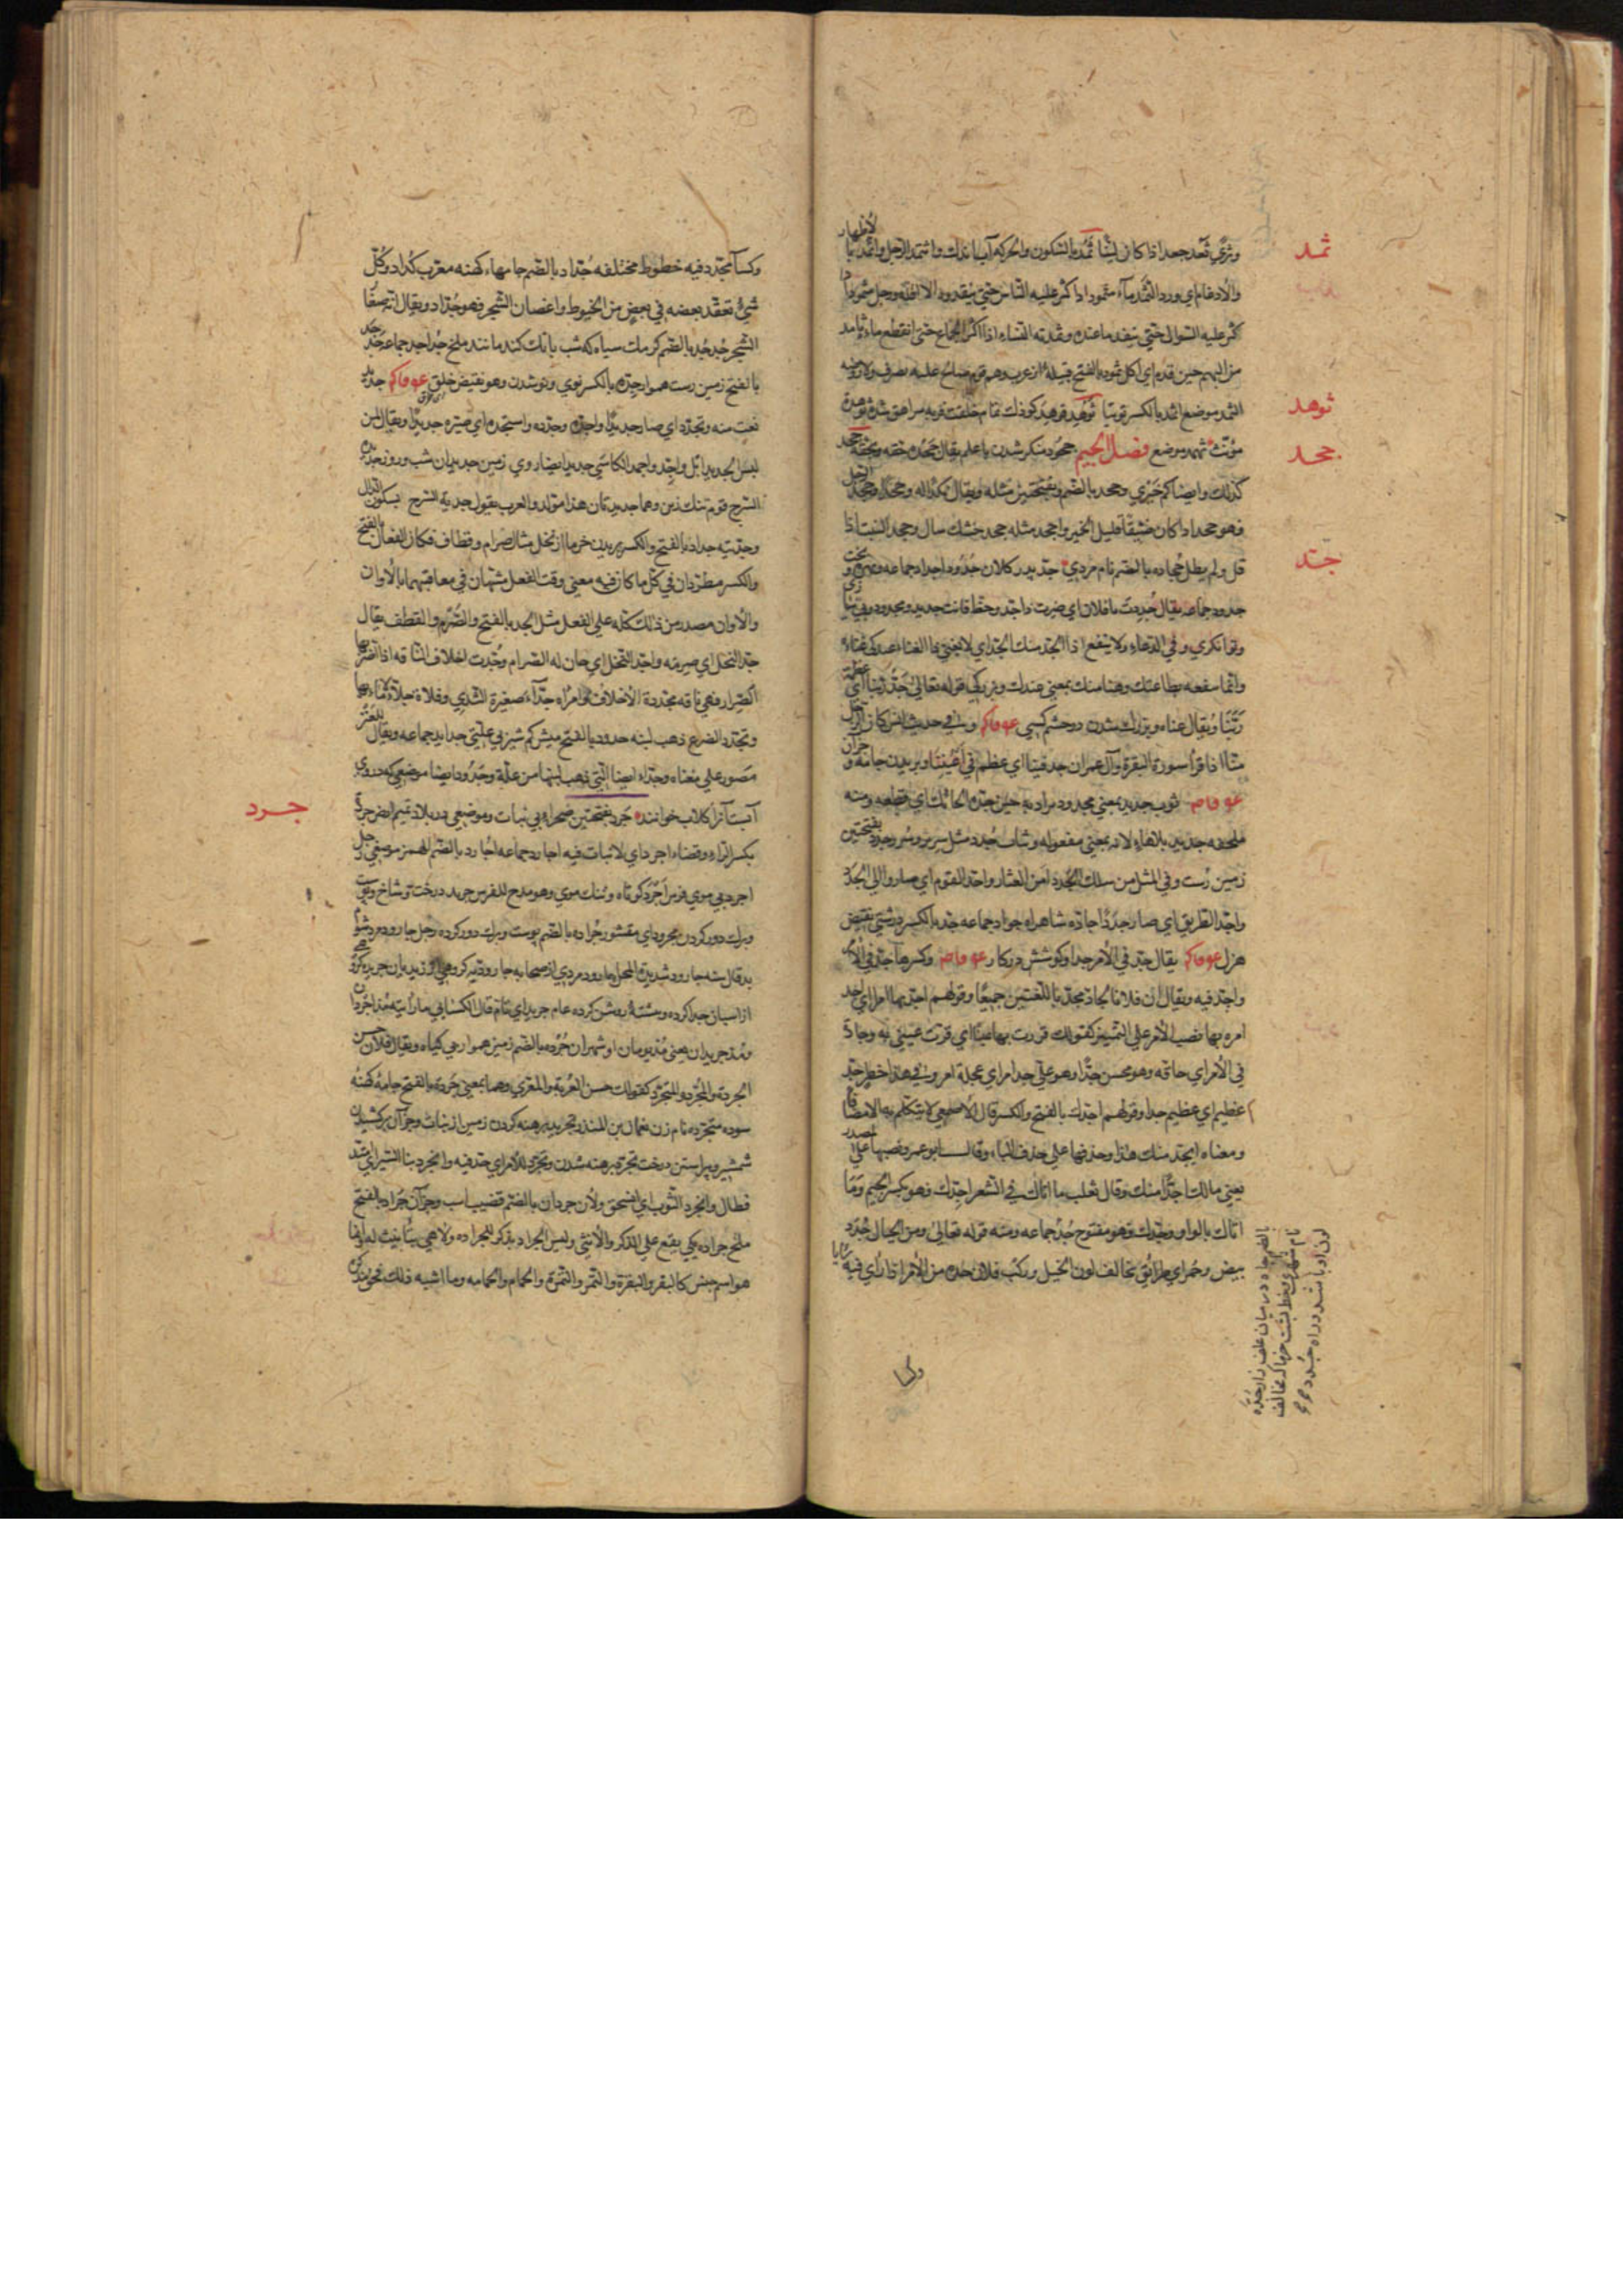 ثمد
وثري ثعد جعد اذا كان لينا ثمد بالسكون والحركه آب اندك واثتمد الرجل واثمد با لاظهار
والادغام اي ورد الثمد ماء مثمود اذا كثر عليه الناس حتى ينفدوه الا اقله ورجل مثمود اذا
كثر عليه السوال حتى ينفد ما عنده وثمدته النساء اذا اكثر الجماع حتى انقطع ماءه ثامد
من البهم حين قدم اي اكل ثمود بالفتح قبيله از عرب وهم قوم صالح عليه يصرف ولا
ثوهد
اثمد موضع اثمد بالكسر توتيا ثوهد فوهد كودك تمام خلقت قريب مراهق شده ثوهدة
جحد
مؤنث ثهمد موضع فصل الجيم جحود منكر شدن با علم يقال جحده حقه وبحقه جحد
كذلك وايضا كم خيري وجحد بالضم وبفتحتين مثله ويقال نكدا له وجحدا وجحد الرجل
فهو جحد اذا كان ضيقا قليل الخير واجحد مثله جحد خشك سال وجحد النبت اذا
جد
قل ولم يطل جحاده بالضم نام مردي جد پدر كلان جدود اجداد جماعه وبهره وبخت
جدود جماعه يقال جددت يا فلان اي صرت ذا جد وحظ فانت جديد ومجدود وبي نيازي
وتوانكري وفي الدعاء ولا ينفع ذا الجد منك الجد اي لا يغني ذا الغناء عندك غناءه
وانما ينفعه بطاعتك وهنا منك بمعنى عندك وبزركي قوله تعالى جد ربنا اي عظمة
ربنا ويقال غناه وبزرك شدن در چشم كسي عو فاكم وفي حديث انس كان الرجل
منا اذا قرأ سورة البقرة وآل عمران جد فينا اي عظم في اعيننا وبريدن جامه وجزآن
عو فاصم ثوب جديد بمعنى مجدود مراد به حين جده الحائك اي قطعه ومنه
ملحفه جديد بلا هاء لانه بمعنى مفعوله وثياب جدد مثل سرير وسرر وجدد بفتحتين
زمين درست وفي المثل من سلك الجدد امن العثار واجد القوم اي صاروا الى الجدد
واجد الطريق اي صار جددا جاده شاهراه جواد جماعه جد بالكسر درستي نقيض
هزل عو فاكم يقال جد في الامر جدا وكوشش در كار عو فاصم وكسرها جد في الامر
واجد فيه ويقال ان فلانا لجاد مجد باللغتين جميعا وقولهم اجد بها امرا اي اجد
امره بها نصب الامر على التمييز كقولك قررت بها عينا اي قرت عيني به وجاده
في الامر اي حاقه وهو محسن جدا وهو على جد امر اي عجلة امر وفي هذا خطر جد
عظيم اي عظيم جدا وقولهم اجدك بالفتح والكسر قال الاصمعي لا يتكلم به الا مضافا
ومعناه ابجد منك هذا وحذفها على حذف الباء وقال ابو عمرو نصبها على المصدر
يعني مالك اجدا منك وقال ثعلب ما اتاك في الشعر اجدك فهو بكسر الجيم وما
اتاك بالواو وجدك فهو مفتوح جدد جماعه ومنه قوله تعالى ومن الجبال جدد
بيض وحمر اي طرائق تخالف لون الجبل وركب فلان جده من الامر اذا رأى فيه رأيا
بالضم راه در ميان علف زار جده
نام شهري وخط پشت خر كه مخالف
لون او باشد وراه جدد ج
وكسا
وكساء مجدد فيه خطوط مختلفه جداد بالضم جامهاء كهنه معرب كداد وكل
شئ تعقد بعضه في بعض من الخيوط واغصان الشجر فهو جداد ويقال انه صغار
الشجر جدجد بالضم كرمك سياه كه شب بانك كند مانند ملخ جداجد جماعه جدجد
بالفتح زمين درست هموار جده بالكسر نوي ونو شدن وهو نقيض خلق عو فاكم جديد
نعت منه وتجدد اي صار جديدا واجده وجدده واستجده اي صيره جديدا ويقال لمن
لبس الجديد ابل واجد واحمد الكاسي جديد ايضا روي زمين جديدان شب وروز جديده
السرج قوم تنك زين وهما جديدتان هذا مولد والعرب يقول جدية السرج بسكون الدال
وجديه جداد بالفتح والكسر بريدن خرما از نخل مثال صرام وقطاف فكان الفعال بالفتح
والكسر مطردان في كل ما كان فيه معنى وقت الفعل مشبهان في معاقبتهما بالاوان
والاوان مصدر من ذلك كله على الفعل مثل الجد بالفتح والصرم والقطف يقال
جد النخل اي صرمه واجد النخل اي حان له الصرام وجدت اخلاف الناقه اذا اضر بها
الصرار فهي ناقه مجددة الاخلاف وامرأه جداء صغيرة الثدي وفلاة جداء لا ماء بها
وتجدد الضرع ذهب لبنه جدود بالفتح ميش كم شير بي علتي جدايد جماعه ويقال للعنز
مصور على معناه وجداء ايضا التي ذهب لبنها من علة وجدود ايضا موضعي كه دروي
جرد
آبست آنرا كلاب خوانند جرد بفتحتين صحراء بي نبات وموضعي در بلاد تميم ارض جردة
بكسر الراء وفضاء اجرد اي لا نبات فيه اجارد جماعه اجارد بالضم لهمز موضعي رجل
اجرد بي موي فرس اجرد كوتاه وتنك موي وهو مدح للفرس جريد درخت وشاخ وپوست
وبرك دور كردن مجرود اي مقشور جراده بالضم پوست وبرك دور كرده رجل جارود مرد شوم
بد فال سنه جارود شديدة المحل جارود مردي از صحابه جاروديه كروهي از زيديان جريده كروهي
از اسبان جدا كرده ومشتة روشن كرده عام جريد اي تام قال الكسائي ما رأيته مذ اجردان
ومذ جريدان يعني مذ يومان او شهران جرده بالضم زمين هموار بي كياه ويقال فلان حسن
الجردة والمجرد والمتجرد كقولك حسن العرية والمعري وهما بمعنى جردة بالفتح جامه كهنه
سوده متجرده نام زن نعمان بن المنذر تجريد برهنه كردن زمين از نبات وجزآن بركشيدن
شمشير وپيراستن درخت تجرد برهنه شدن وتجرد للامر اي جد فيه وانجرد بنا السير اي امتد
فطال وانجرد الثوب اي انسحق ولان جردان بالضم قضيب اسب وجزآن جراد بالفتح
ملخ جراده يكي يقع على الذكر والانثى وليس الجراد بذكر للجراده ولا هي بتأنيث له وانما
هو اسم جنس كالبقر والبقرة والتمر والتمرة والحمام والحمامه وما اشبه ذلك